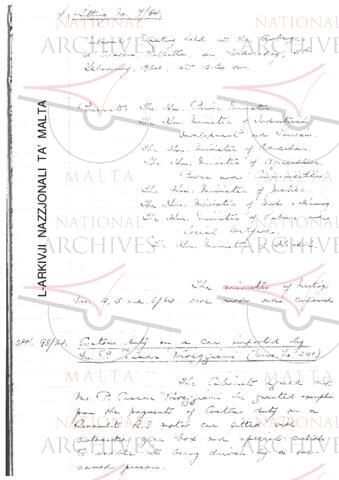 Sitting No. 7/64.
Cabinet Meeting held at the Auberge
February, 1964, at 10.30 am.
Present: The Hon. Prime Minister
The Hon. Minister of Industrial
Development and Tourism.
The Hon. Minister of Education.
The Hon. Minister of Agriculture
Power and Communications
The Hon. Minister of Justice
The Hon. Minister of Works & Housing
The Hon. Minister of Labour and
Social Welfare.
The Hon. Minister of Health.
The minutes of meeting
Nos. 4, 5 and 6/64 were read and confirmed
OPM. 98/64. Customs duty on a car imported by
Mr. P.
The Cabinet agreed that
Mr. P. be granted exemption
from the payment of Customs duty on a
Renault R.8 motor car fitted with
automatic gear box and special controls
to enable its being driven by a one-
armed person.
L-ARKIVJI NAZZJONALI TA' MALTA
NATIONAL
MALTA
ARCHIVES
NATIONAL
MALTA
ARCHIVES
NATIONAL
MALTA
ARCHIVES